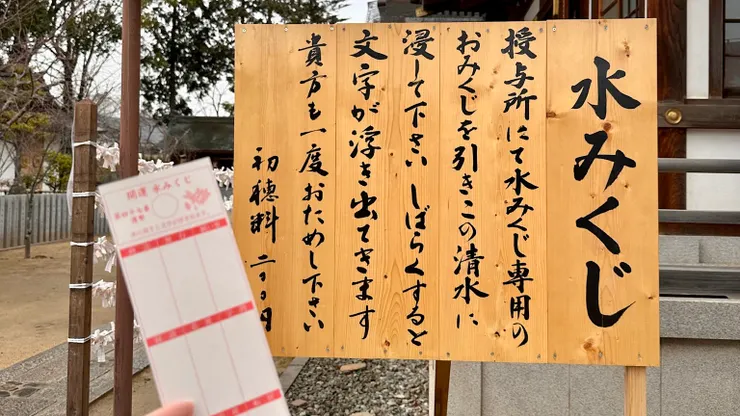 水みくじ
授与所にて水みくじ専用の
おみくじを引きこの清水に
浸して下さい しばらくすると
文字が浮き出てきます
貴方も一度おためし下さい
初穂料 二〇〇円
開運 水みくじ